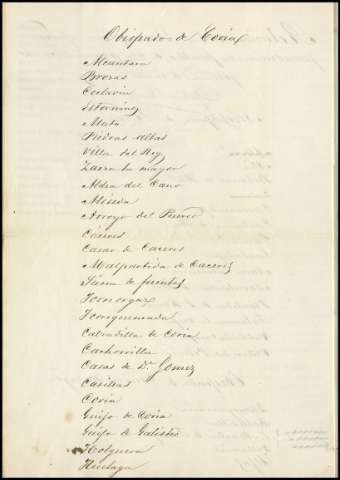 Obispado de Coria
Alcantara
Brozas
Ceclavin
Estorninos
Mata
Piedras albas
Villa del Rey
Zarza la mayor
Aldea del Cano
Aliseda
Arroyo del Puerco
Cáceres
Casar de Caceres
Malpartida de Caceres
Sierra de fuentes
Torreorgaz
Torrequemada
Calzadilla de Coria
Cachorrilla
Casas de Dn. Gomez
Casillas
Coria
Guijo de Coria
Guijo de Galisteo
Holguera
Huelaga